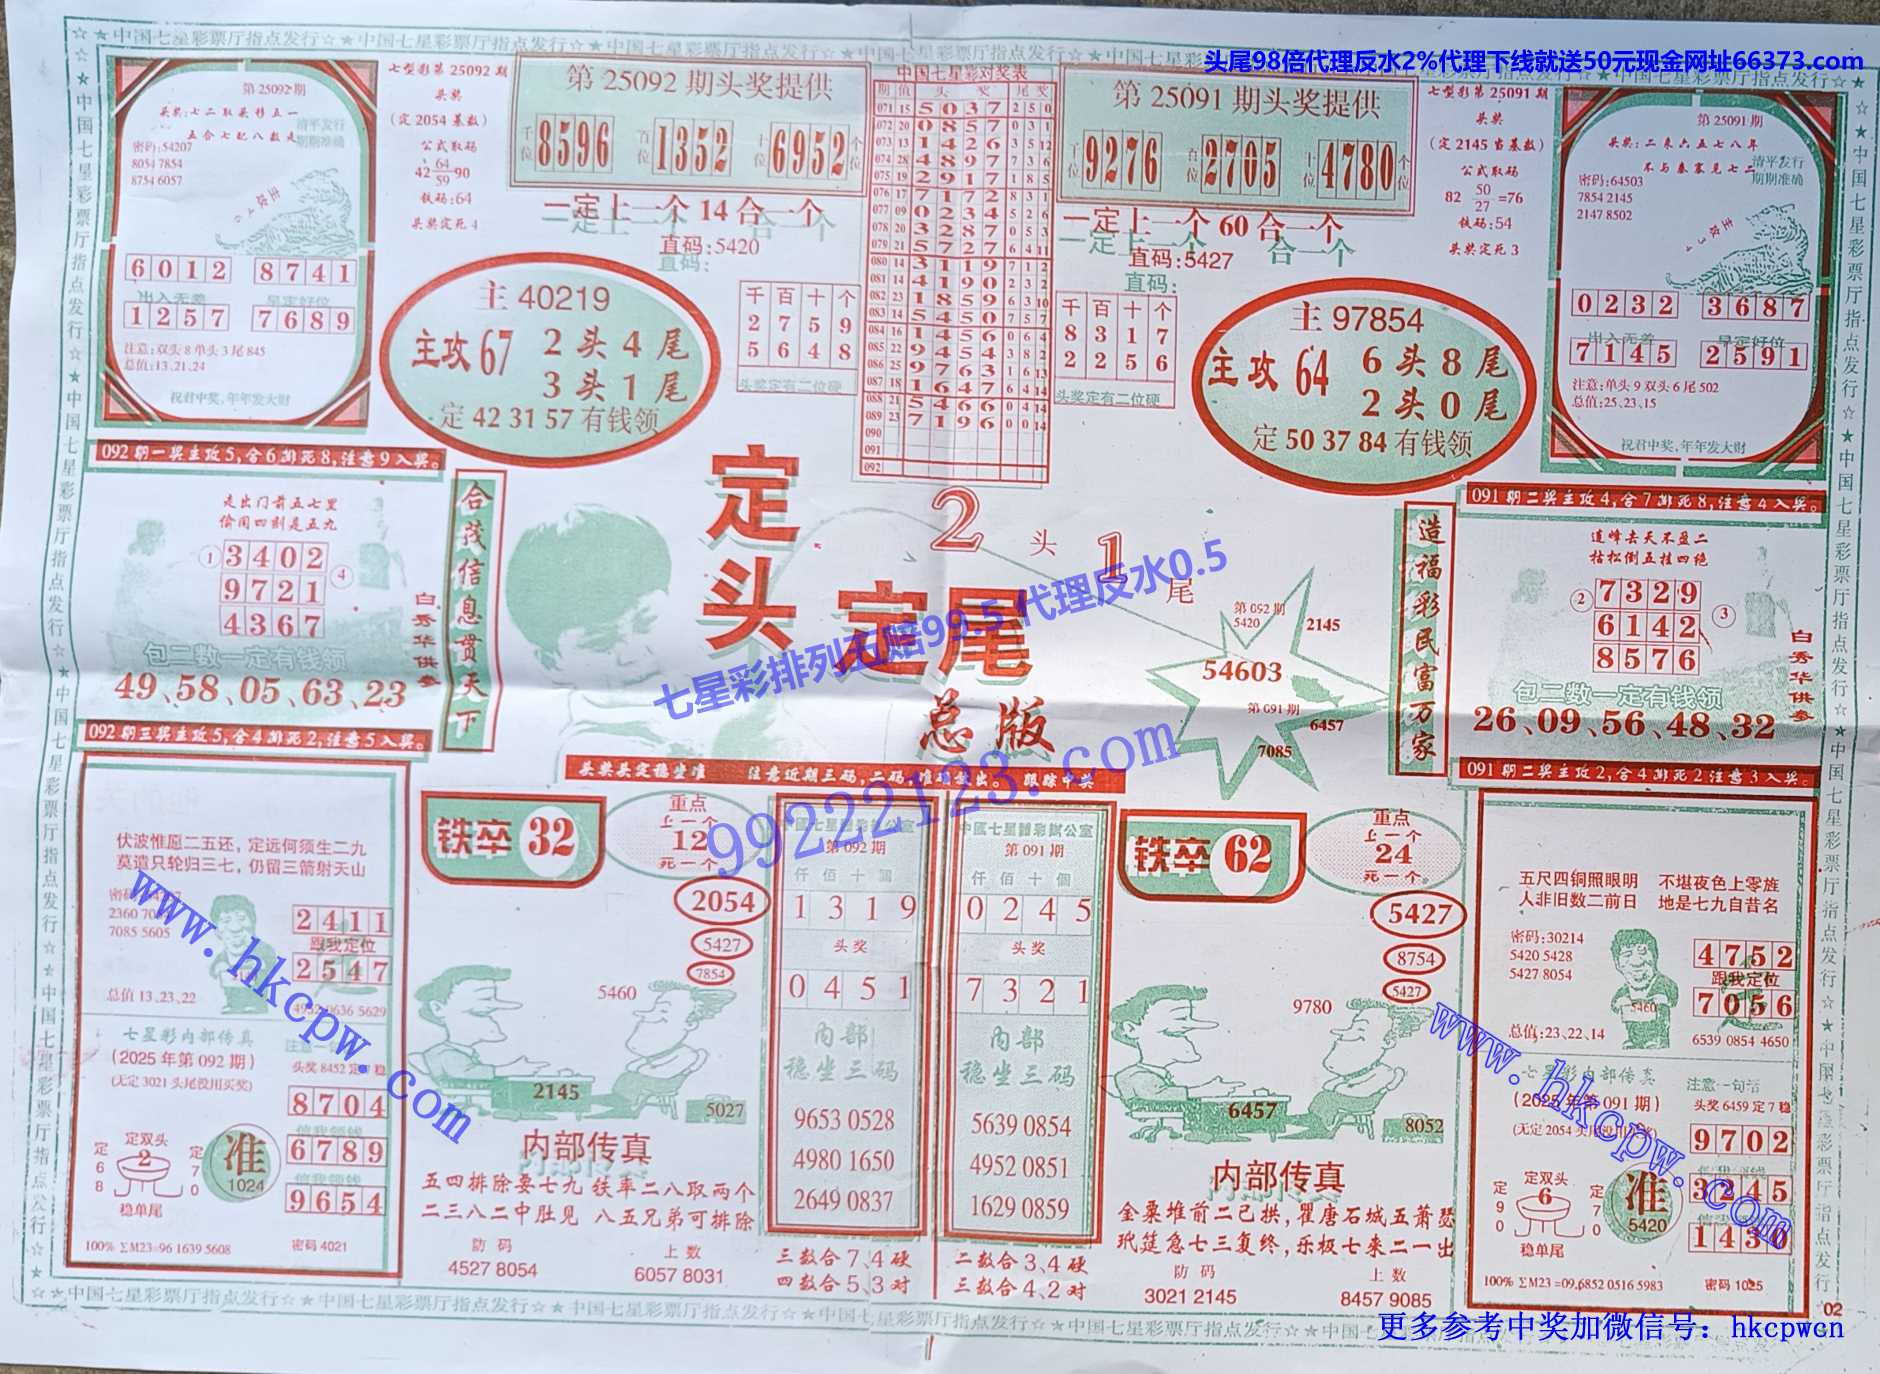 头尾98倍代理反水2%代理下线就送50元现金网址66373.com
☆★中国七星彩票厅指点发行☆★中国七星彩票厅指点发行☆★中国七星彩票厅指点发行
第25092期
头奖:七二取头移五一
五合七配八数是
清平发行
期期准确
密码:54207
8054 7854
8754 6057
6012 8741
出入无差 早定好位
1257 7689
注意:双头8单头3尾845
总值:13,21,24
祝君中奖,年年发大财
七型彩第25092期
头奖
(定2054基数)
公式取码
64
42 90
59
铁码:64
头奖定死4
第25092期头奖提供
千位 8596 百位 1352 十位 6952 个位
一定上一个14合一个
直码:5420
主40219
主攻67 2头4尾
3头1尾
定423157有钱领
千百十个
2759
5648
头奖定有二位硬
中国七星彩对奖表
期 值 头奖 尾奖
071 15 5037 250
072 20 0857 031
073 13 1426 3512
074 28 4897 736
075 19 2917 185
076 17 7172 831
077 09 0234 526
078 20 3287 053
079 21 5727 6411
080 14 3119 712
081 14 4190 232
082 23 1859 6310
083 14 5450 757
084 16 1456 064
085 22 9454 382
086 25 9763 1613
087 18 1647 6414
088 21 5466 0414
089 23 7196 0014
090
091
092
第25091期头奖提供
千位 9276 百位 2705 十位 4780 个位
一定上一个60合一个
直码:5427
直码:
千百十个
8317
2256
头奖定有二位硬
主97854
主攻64 6头8尾
2头0尾
定503784有钱领
七型彩第25091期
头奖
(定2145当基数)
公式取码
50
82 =76
27
铁码:54
头奖定死3
第25091期
头奖:二来六五七八年
不与秦塞见七二
清平发行
期期准确
密码:64503
7854 2145
2147 8502
0232 3687
出入无差 早定好位
7145 2591
注意:单头9双头6尾502
总值:25,23,15
祝君中奖,年年发大财
092期一奖主攻5,合6排死8,注意9入奖。
走出门前五七里
偷闲四割是五九
① 3402
9721 ④
4367
包二数一定有钱领
49、58、05、63、23
白秀华供参
合茂信息贯天下
定头
2头1尾
定尾
总版
七星彩排列五赔99.5 代理反水0.5
99222123.com
第092期
5420
2145
54603
第091期
6457
7085
造福彩民富万家
091期二奖主攻4,合7排死8,注意4入奖。
道峰去天不盈二
枯松倒五挂四绝
② 7329
6142 ③
8576
包二数一定有钱领
26、09、56、48、32
白秀华供参
092期三奖主攻5,合4排死2,注意5入奖。
伏波惟愿二五还，定远何须生二九
莫遣只轮归三七，仍留三箭射天山
2360
7085 5605
2411
跟我定位
2547
总值13,23,22
4952 0636 5629
七星彩内部传真
(2025年第092期)
(无定3021头尾没用买奖)
头奖8452定
8704
信我领钱
6789
信我领钱
9654
定双头
2
定68
定70
稳单尾
准
1024
100% ΣM23=96 1639 5608 密码4021
头奖头定稳坐准 注意近期三码,二码 跟踪中奖
铁卒32
重点
上一个
12
死一个
2054
5427
7854
5460
2145
5027
内部传真
五四排除要七九 铁率二八取两个
二三八二中胜见 八五兄弟可排除
防码 上数
4527 8054 6057 8031
中國七星體彩試公室
第092期
仟佰十個
1319
头奖
0451
内部
稳坐三码
9653 0528
4980 1650
2649 0837
三数合7、4硬
四数合5、3对
中國七星體彩試公室
第091期
仟佰十個
0245
头奖
7321
内部
稳坐三码
5639 0854
4952 0851
1629 0859
二数合3、4硬
三数合4、2对
铁卒62
重点
上一个
24
死一个
5427
8754
5427
9780
6457
8052
内部传真
金粟堆前二已拱,瞿唐石城五萧瑟
玳筵急七三复终,乐极七来二一出
防码 上数
3021 2145 8457 9085
091期二奖主攻2,合4排死2注意3入奖。
五尺四铜照眼明 不堪夜色上零旌
人非旧数二前日 地是七九自昔名
密码:30214
5420 5428
5427 8054
4752
跟我定位
7056
5460
总值:23、22、14
6539 0854 4650
七星彩内部传真
(2025年第091期)
注意一句话
头奖6459定7稳
9702
3245
1430
定双头
6
定90
定70
稳单尾
准
5420
100% ΣM23=09,6852 0516 5983 密码1025
www.hkcpw.com
www.hkcpw.com
02
更多参考中奖加微信号：hkcpwcn